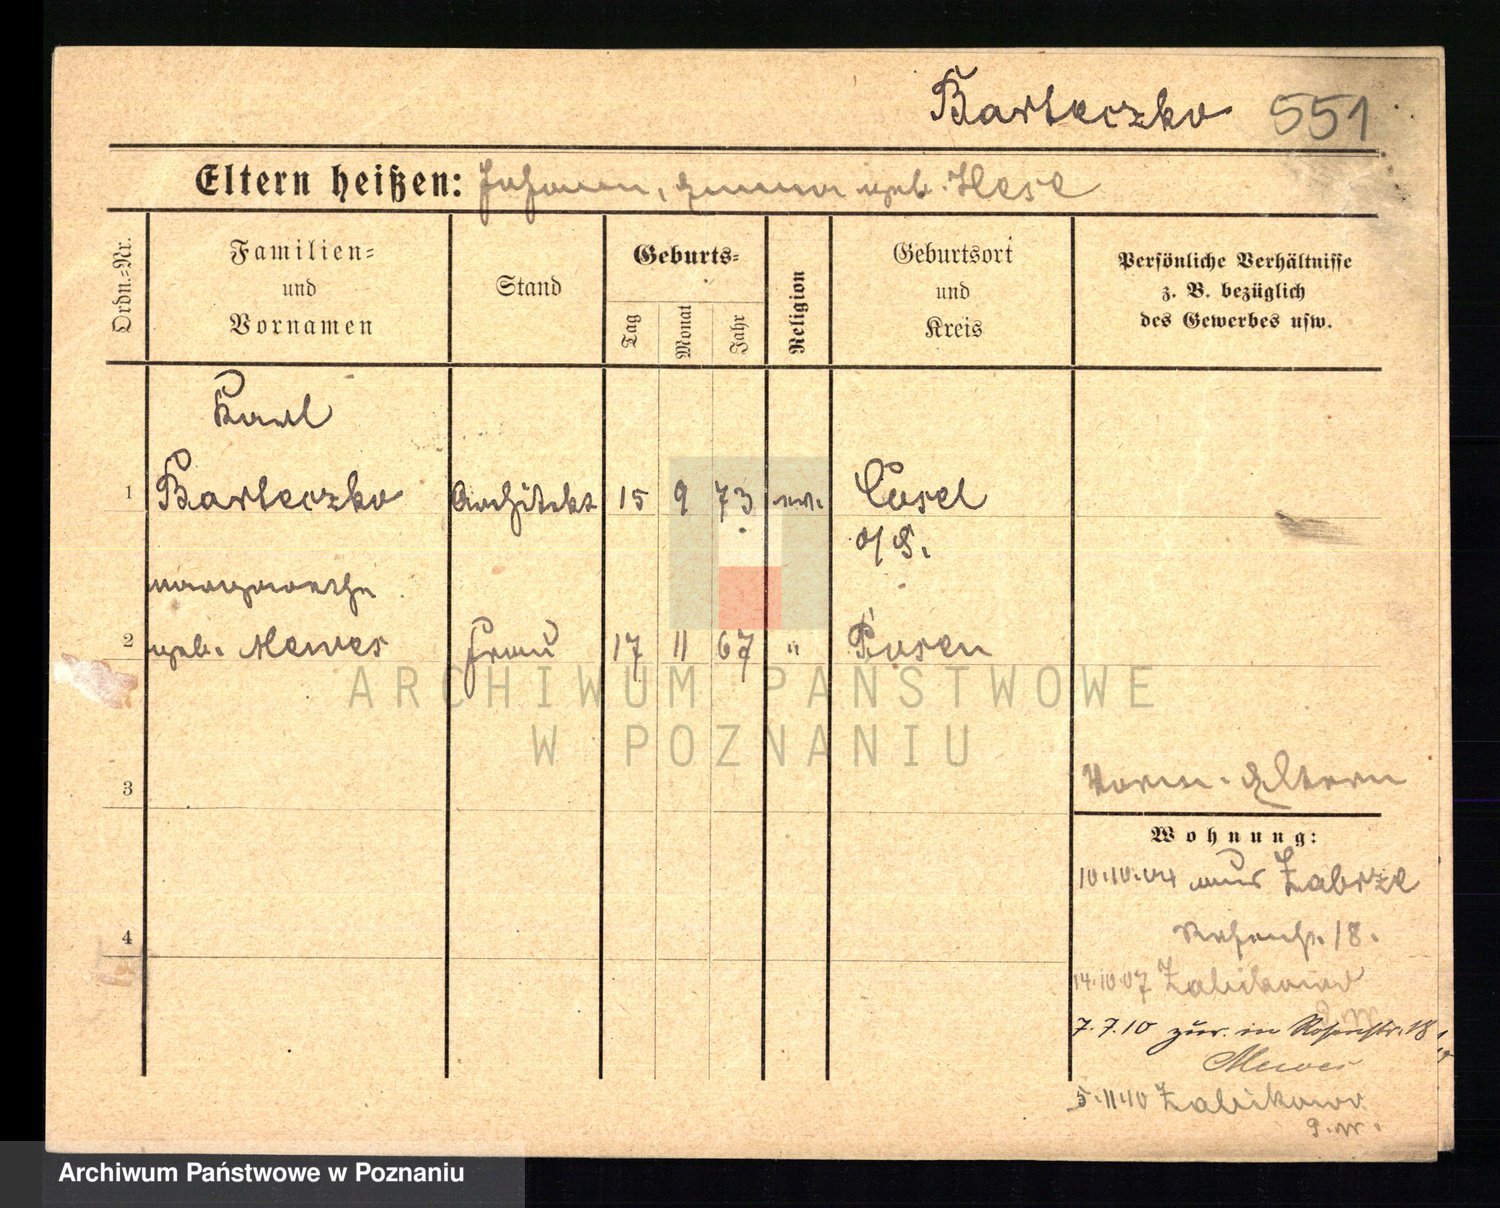 Barteczko 551
Eltern heißen: Johann, Emma geb. Hese
Ordn.-Nr.
Familien-
und
Vornamen
Stand
Geburts-
Tag
Monat
Jahr
Religion
Geburtsort
und
Kreis
Persönliche Verhältnisse
z. B. bezüglich
des Gewerbes usw.
Karl
1 Barteczko Architekt 15 9 73 Cosel
o/S.
Margarethe
2 geb. Mewes Frau 17 11 67 " Posen
3
4
Eltern
Wohnung:
10.10.04 aus Zabrze
18.
14.10.07 Zabikowo
7.7.10 zur. in Rosenstr. 18
Mewes
5.11.10 Zabikowo
ARCHIWUM PAŃSTWOWE
W POZNANIU
Archiwum Państwowe w Poznaniu